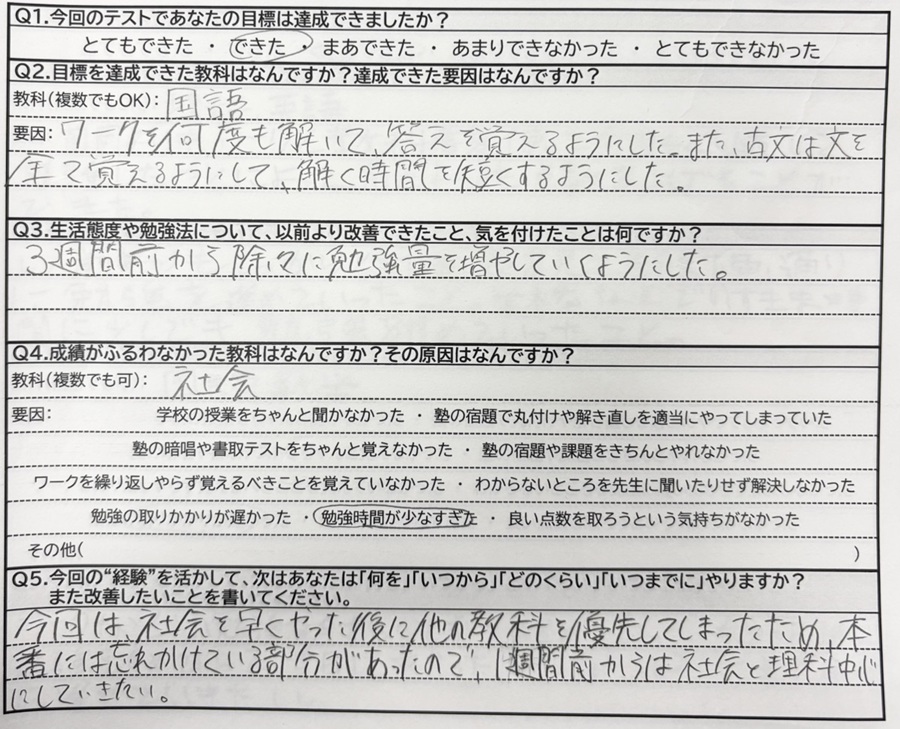 Q1.今回のテストであなたの目標は達成できましたか？
とてもできた ・ できた ・ まあできた ・ あまりできなかった ・ とてもできなかった
Q2.目標を達成できた教科はなんですか？達成できた要因はなんですか？
教科(複数でもOK)： 国語
要因：ワークを何度も解いて、答えを覚えるようにした。また、古文は文を
全て覚えるようにして、解く時間を短くするようにした。
Q3.生活態度や勉強法について、以前より改善できたこと、気を付けたことは何ですか？
3週間前から除々に勉強量を増やしていくようにした。
Q4.成績がふるわなかった教科はなんですか？その原因はなんですか？
教科(複数でも可)： 社会
要因： 学校の授業をちゃんと聞かなかった ・ 塾の宿題で丸付けや解き直しを適当にやってしまっていた
塾の暗唱や書取テストをちゃんと覚えなかった ・ 塾の宿題や課題をきちんとやれなかった
ワークを繰り返しやらず覚えるべきことを覚えていなかった ・ わからないところを先生に聞いたりせず解決しなかった
勉強の取りかかりが遅かった ・ 勉強時間が少なすぎた ・ 良い点数を取ろうという気持ちがなかった
その他( )
Q5.今回の“経験”を活かして、次はあなたは「何を」「いつから」「どのくらい」「いつまでに」やりますか？
また改善したいことを書いてください。
今回は、社会を早くやった後に他の教科を優先してしまったため、本
番には忘れかけている部分があったので、1週間前からは社会と理科中心
にしていきたい。